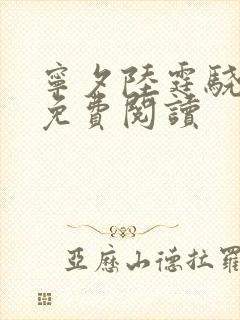 寧夕陸霆驍
免費閱讀
亞歷山德拉羅